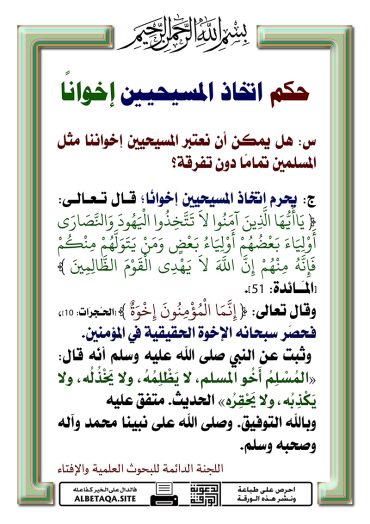 بسم الله الرحمن الرحيم
حكم اتخاذ المسيحيين إخوانًا
س: هل يمكن أن نعتبر المسيحيين إخواننا مثل
المسلمين تمامًا دون تفرقة؟
ج: يحرم اتخاذ المسيحيين إخوانًا؛ قال تعالى:
﴿ يَاأَيُّهَا الَّذِينَ آمَنُوا لاَ تَتَّخِذُوا الْيَهُودَ وَالنَّصَارَى
أَوْلِيَاءَ بَعْضُهُمْ أَوْلِيَاءُ بَعْضٍ وَمَنْ يَتَوَلَّهُمْ مِنْكُمْ
فَإِنَّهُ مِنْهُمْ إِنَّ اللَّهَ لاَ يَهْدِى الْقَوْمَ الظَّالِمِينَ ﴾
[المائدة: 51].
وقال تعالى: ﴿ إِنَّمَا الْمُؤْمِنُونَ إِخْوَةٌ ﴾ [الحجرات: 10]،
فحصَر سبحانه الإخوة الحقيقية في المؤمنين.
وثبت عن النبي صلى الله عليه وسلم أنه قال:
«المُسْلِمُ أَخُو المسلم، لا يَظْلِمُهُ، ولا يَخْذُلُه، ولا
يَكْذِبُه، ولا يَحْقِرُه» الحديث. متفق عليه
وبالله التوفيق. وصلى الله على نبينا محمد وآله
وصحبه وسلم.
اللجنة الدائمة للبحوث العلمية والإفتاء
احرص على طباعة
ونشر هذه الورقة
الدال على الخير كفاعله
ALBETAQA.SITE